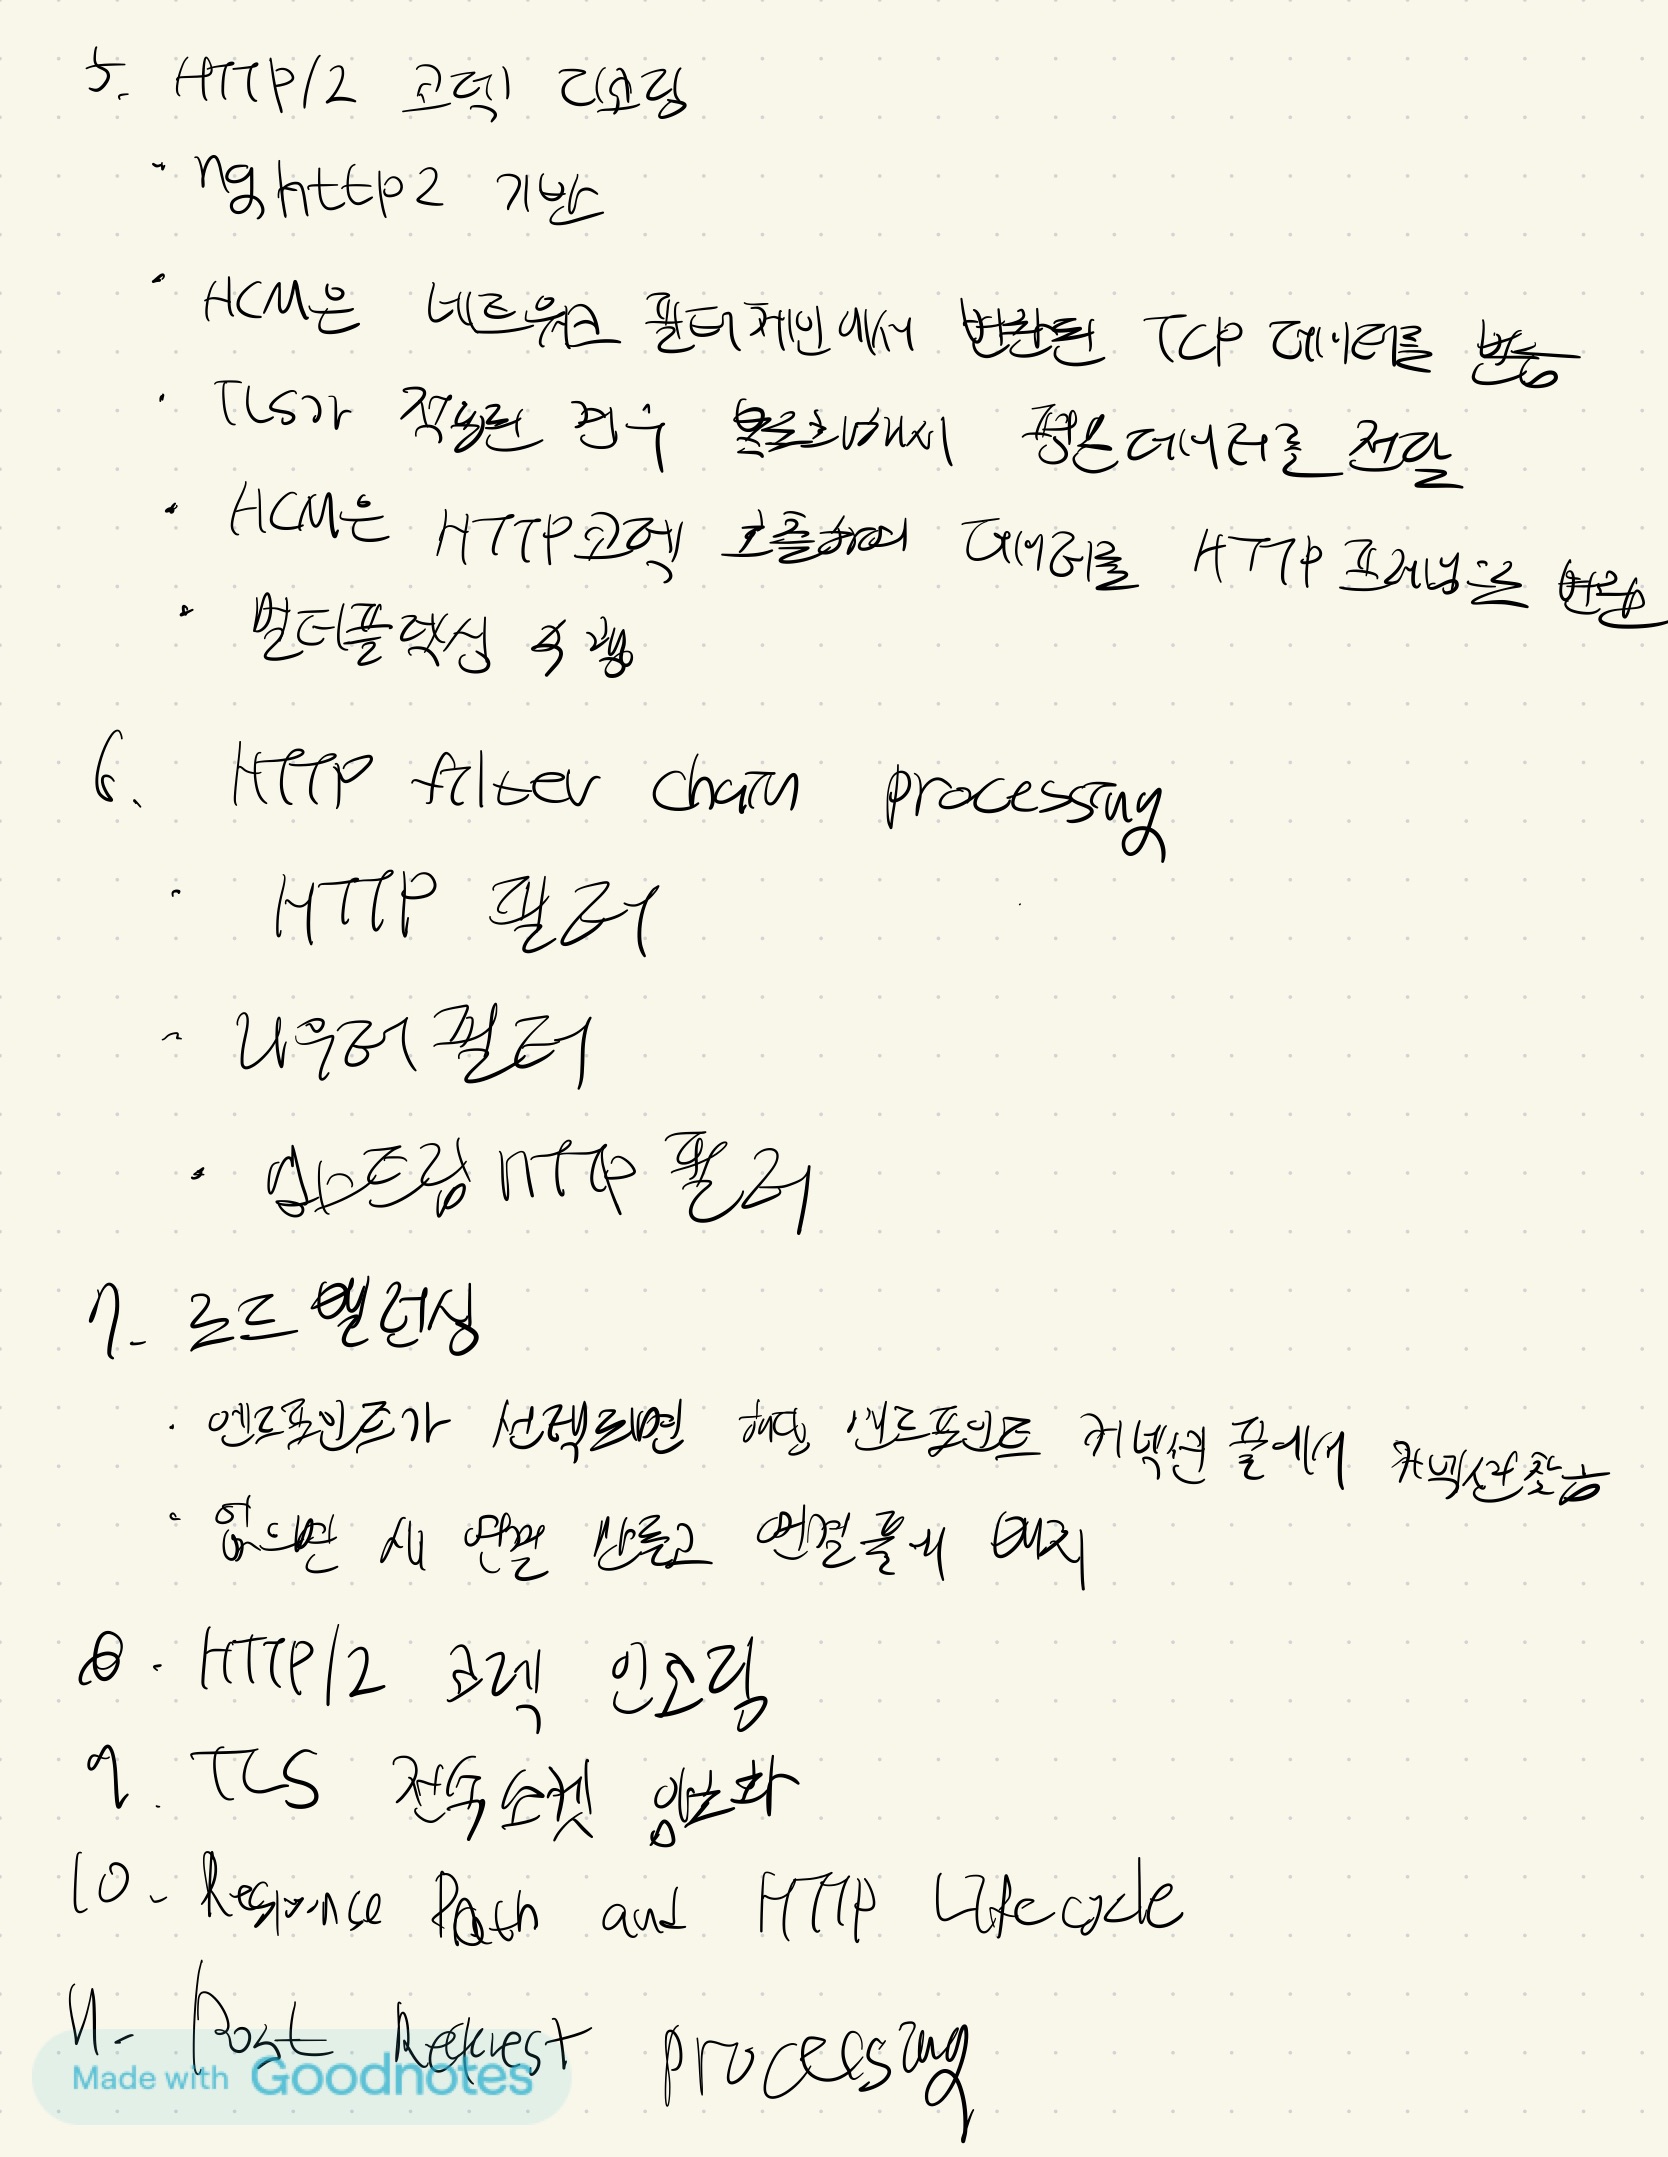 5. HTTP/2 코덱 디코딩
· nghttp2 기반
· HCM은 네트워크 필터체인에서 변환된 TCP 데이터를 받음
· TLS가 적용된 경우 복호화해서 평문데이터를 전달
· HCM은 HTTP코덱 호출하여 데이터를 HTTP 프레임으로 변환
· 멀티플렉싱 수행
6. HTTP filter chain processing
· HTTP 필터
- 라우터 필터
· 업스트림 HTTP 필터
7. 로드밸런싱
· 엔드포인트가 선택되면 해당 엔드포인트 커넥션 풀에서 커넥션 찾음
· 없으면 새 연결 만들고 연결풀에
8. HTTP/2 코덱 인코딩
9. TLS 전송소켓 암호화
10. Response Path and HTTP Lifecycle
11. Post Request processing
Made with Goodnotes